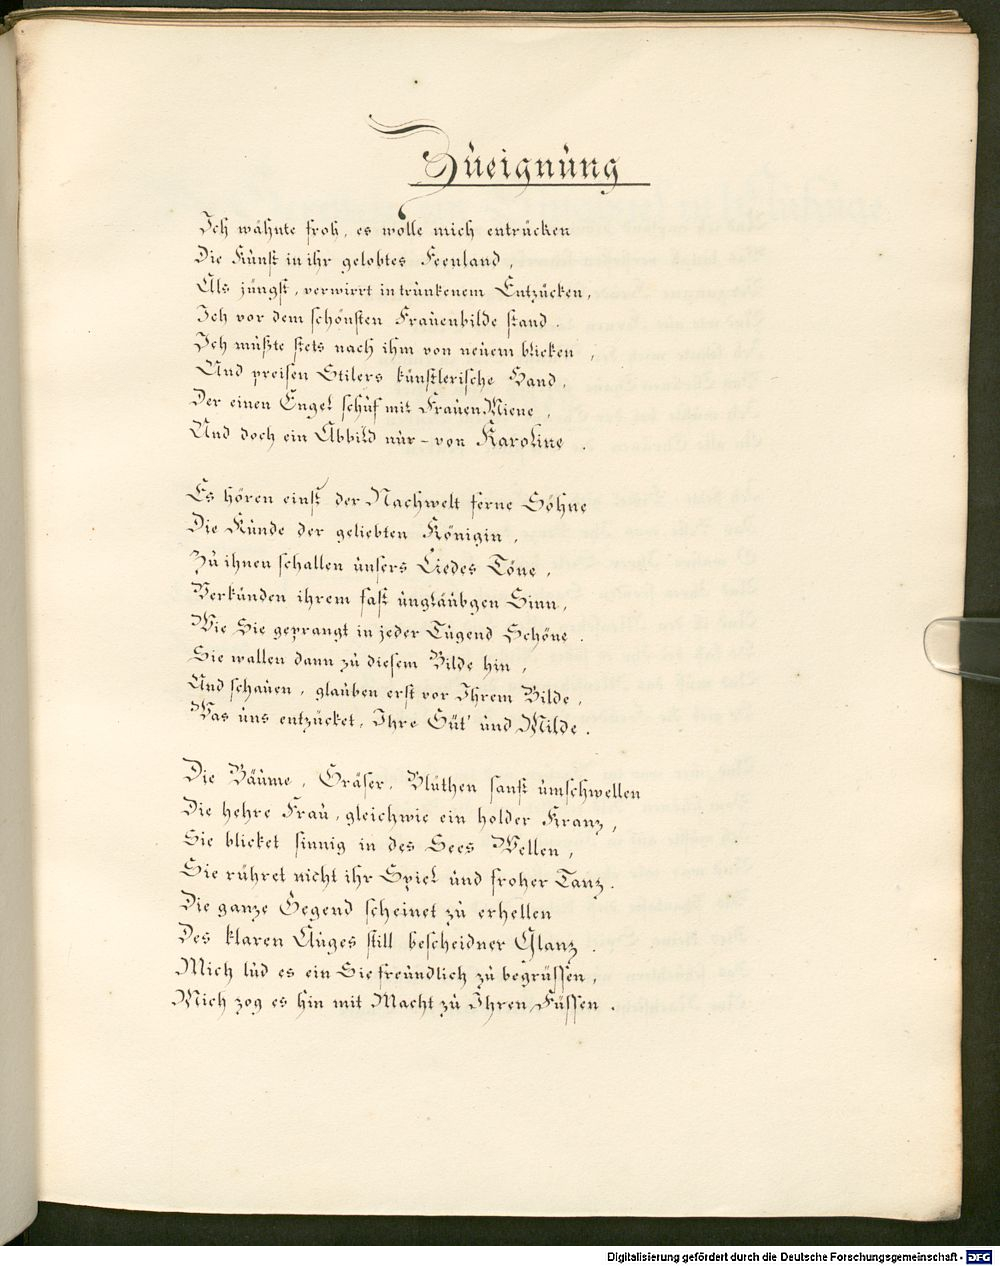 Zueignung
Ich wähnte froh, es wolle mich entrücken
Die Kunst in ihr gelobtes Feenland,
Als jüngst, verwirrt in trunkenem Entzücken,
Ich vor dem schönsten Frauenbilde stand.
Ich mußte stets nach ihm von neuem blicken,
Und preisen Stilers künstlerische Hand,
Der einen Engel schuf mit Frauen Miene,
Und doch ein Abbild nur – von Karoline.
Es hören einst der Nachwelt ferne Söhne
Die Kunde der geliebten Königin,
Zu ihnen schallen unsers Liedes Töne,
Verkünden ihrem fast ungläubgen Sinn,
Wie Sie geprangt in jeder Tugend Schöne.
Sie wallen dann zu diesem Bilde hin,
Und schauen, glauben erst vor Ihrem Bilde,
Was uns entzücket, Ihre Güt' und Milde.
Die Bäume, Gräser, Blüthen sanft umschwellen
Die hehre Frau, gleichwie ein holder Kranz,
Sie blicket sinnig in des Sees Wellen,
Sie rühret nicht ihr Spiel und froher Tanz.
Die ganze Gegend scheinet zu erhellen
Des klaren Auges still bescheidner Glanz.
Mich lud es ein Sie freundlich zu begrüssen,
Mich zog es hin mit Macht zu Ihren Füssen.
Digitalisierung gefördert durch die Deutsche Forschungsgemeinschaft - DFG